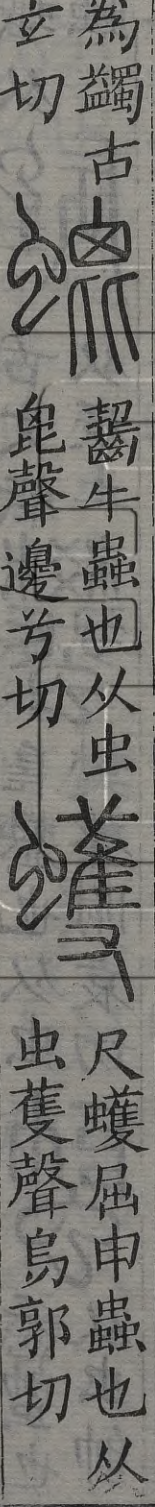 為蠲古
玄切
螕
齧牛蟲也从虫
𣬉聲邊兮切
蠖
尺蠖屈申蟲也从
虫蒦聲烏郭切